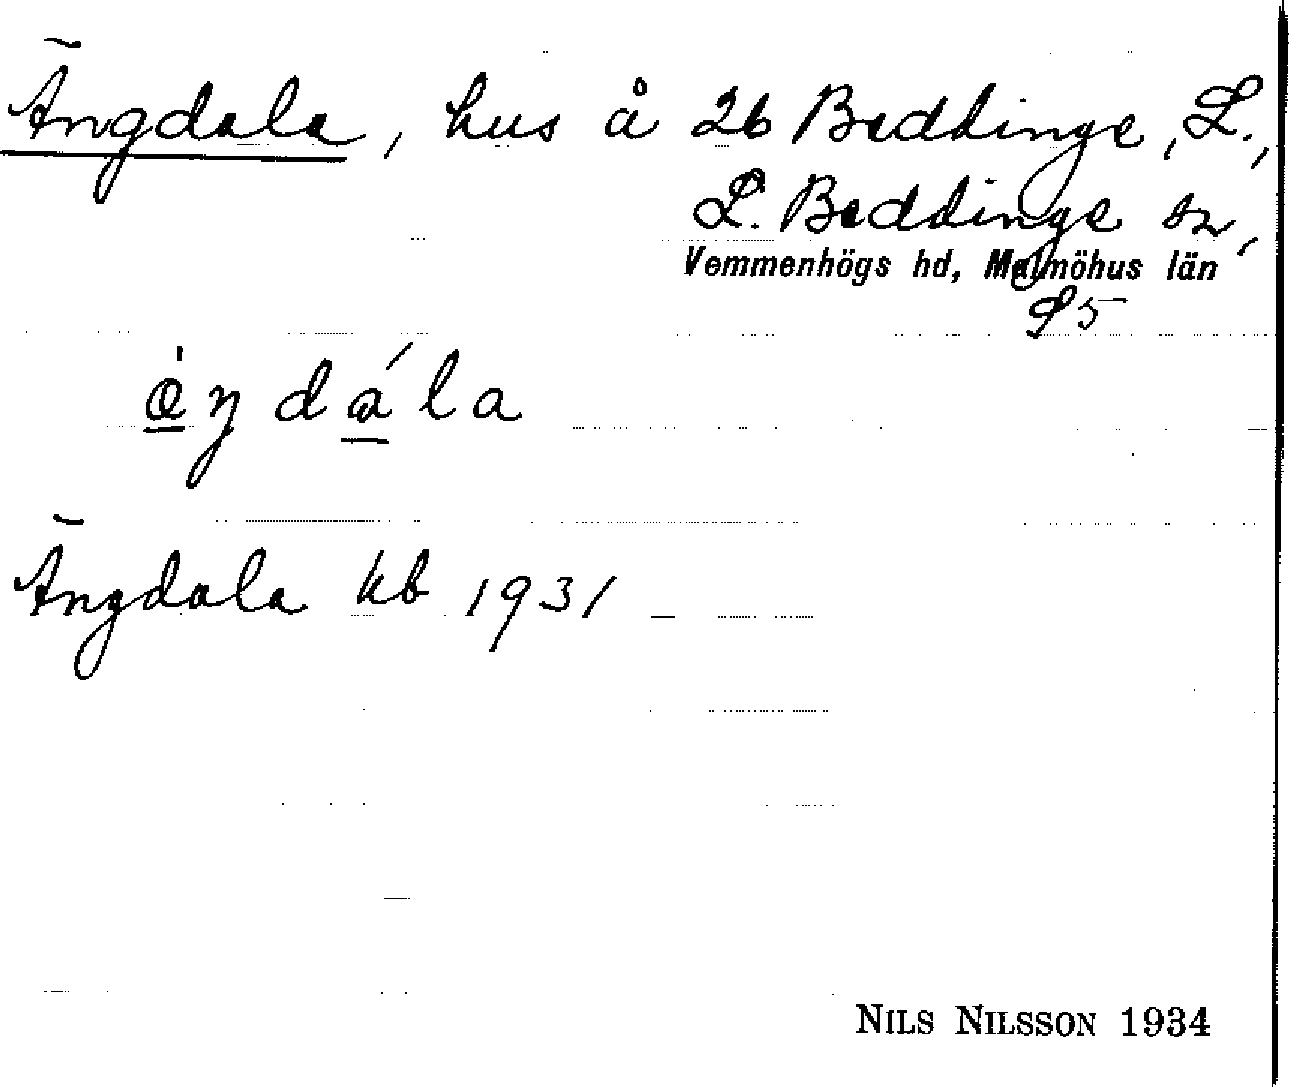 Ängdala, hus å 26 Beddinge, L.,
L. Beddinge sn,
Vemmenhögs hd, Malmöhus län
S5
Ängdala kb 1931
NILS NILSSON 1934